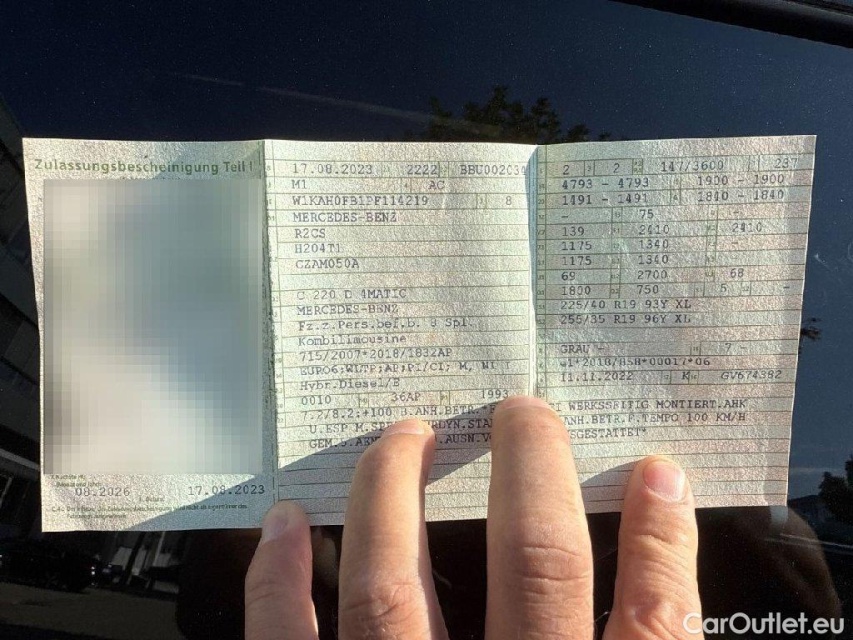 Zulassungsbescheinigung Teil I
08.2026 17.08.2023
17.08.2023 2222 BBU002030
M1 AC
W1KAH0FB1PF114219 8
MERCEDES-BENZ
R2CS
H204T1
CZAM050A
C 220 D 4MATIC
MERCEDES-BENZ
Fz.z.Pers.bef.b. 8 Spl.
Kombilimousine
715/2007*2018/1832AP
EURO6;WLTP;AP;PI/CI; M, N1 I
Hybr.Diesel/E
0010 36AP 1993
7.2/8.2:+100 B.ANH.BETR.*
U.ESP M.
GEM.
2 2 147/3600 237
4793 - 4793 1900 - 1900
1491 - 1491 1840 - 1840
- 75 -
139 2410 2410
1175 1340 -
1175 1340 -
69 2700 68
1800 750 5 -
225/40 R19 93Y XL
255/35 R19 96Y XL
GRAU - 7 -
e1*2018/858*00017*06
11.11.2022 K GV674392
WERKSSEITIG MONTIERT.AHK
ANH.BETR.F.TEMPO 100 KM/H
CarOutlet.eu